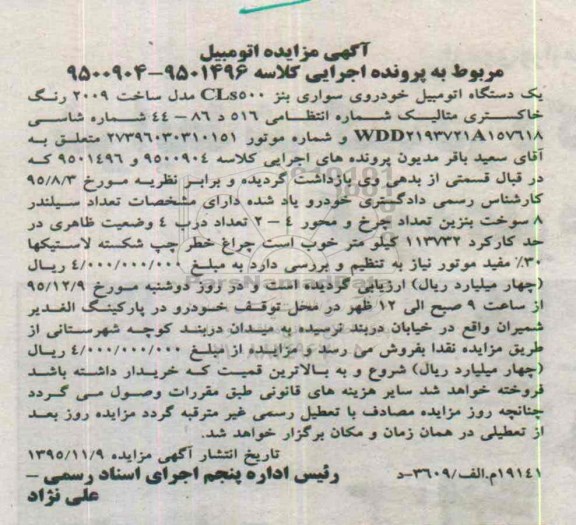 آگهی مزایده اتومبیل
مربوط به پرونده اجرایی کلاسه ۹۵۰۱۴۹۶-۹۵۰۰۹۰۴
یک دستگاه اتومبیل خودروی سواری بنز CLS۵۰۰ مدل ساخت ۲۰۰۹ رنگ
خاکستری متالیک شماره انتظامی ۵۱۶ د ۸۶ - ۴۴ شماره شاسی
WDD۲۱۹۳۷۲۱A۱۵۷۶۱۸ و شماره موتور ۲۷۳۹۶۰۳۰۳۱۰۱۵۱ متعلق به
آقای سعید باقر مدیون پرونده های اجرایی کلاسه ۹۵۰۰۹۰۴ و ۹۵۰۱۴۹۶ که
در قبال قسمتی از بدهی وی بازداشت گردیده و برابر نظریه مورخ ۹۵/۸/۳
کارشناس رسمی دادگستری خودرو یاد شده دارای مشخصات تعداد سیلندر
۸ سوخت بنزین تعداد چرخ و محور ۴ - ۲ تعداد درب ۴ وضعیت ظاهری در
حد کارکرد ۱۱۳۷۳۲ کیلو متر خوب است چراغ خطر چپ شکسته لاستیکها
۳۰٪ مفید موتور نیاز به تنظیم و بررسی دارد به مبلغ ۴/۰۰۰/۰۰۰/۰۰۰ ریال
(چهار میلیارد ریال) ارزیابی گردیده است و در روز دوشنبه مورخ ۹۵/۱۲/۹
از ساعت ۹ صبح الی ۱۲ ظهر در محل توقف خودرو در پارکینگ الغدیر
شمیران واقع در خیابان دربند نرسیده به میدان دربند کوچه شهرستانی از
طریق مزایده نقدا بفروش می رسد و مزایده از مبلغ ۴/۰۰۰/۰۰۰/۰۰۰ ریال
(چهار میلیارد ریال) شروع و به بالاترین قمیت که خریدار داشته باشد
فروخته خواهد شد سایر هزینه های قانونی طبق مقررات وصول می گردد
چنانچه روز مزایده مصادف با تعطیل رسمی غیر مترقبه گردد مزایده روز بعد
از تعطیلی در همان زمان و مکان برگزار خواهد شد.
تاریخ انتشار آگهی مزایده ۱۳۹۵/۱۱/۹
۱۹۱۴۱م.الف/۳۶۰۹-د
رئیس اداره پنجم اجرای اسناد رسمی -
علی نژاد